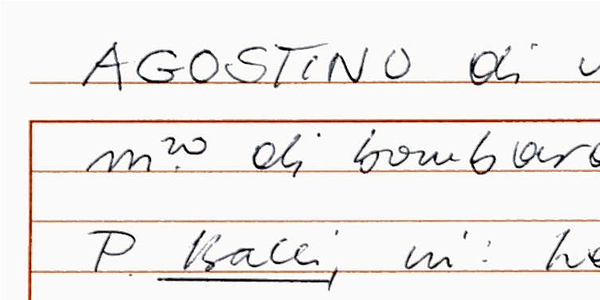 AGOSTINO di
m.ro di bombar
P. Bacci, in: